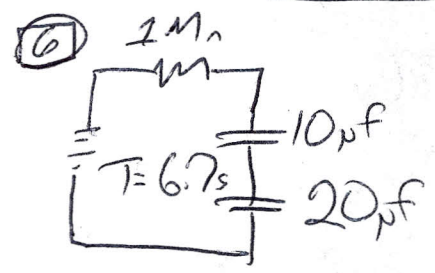 6
1 MΩ
10 μf
T= 6.7s
20 μf